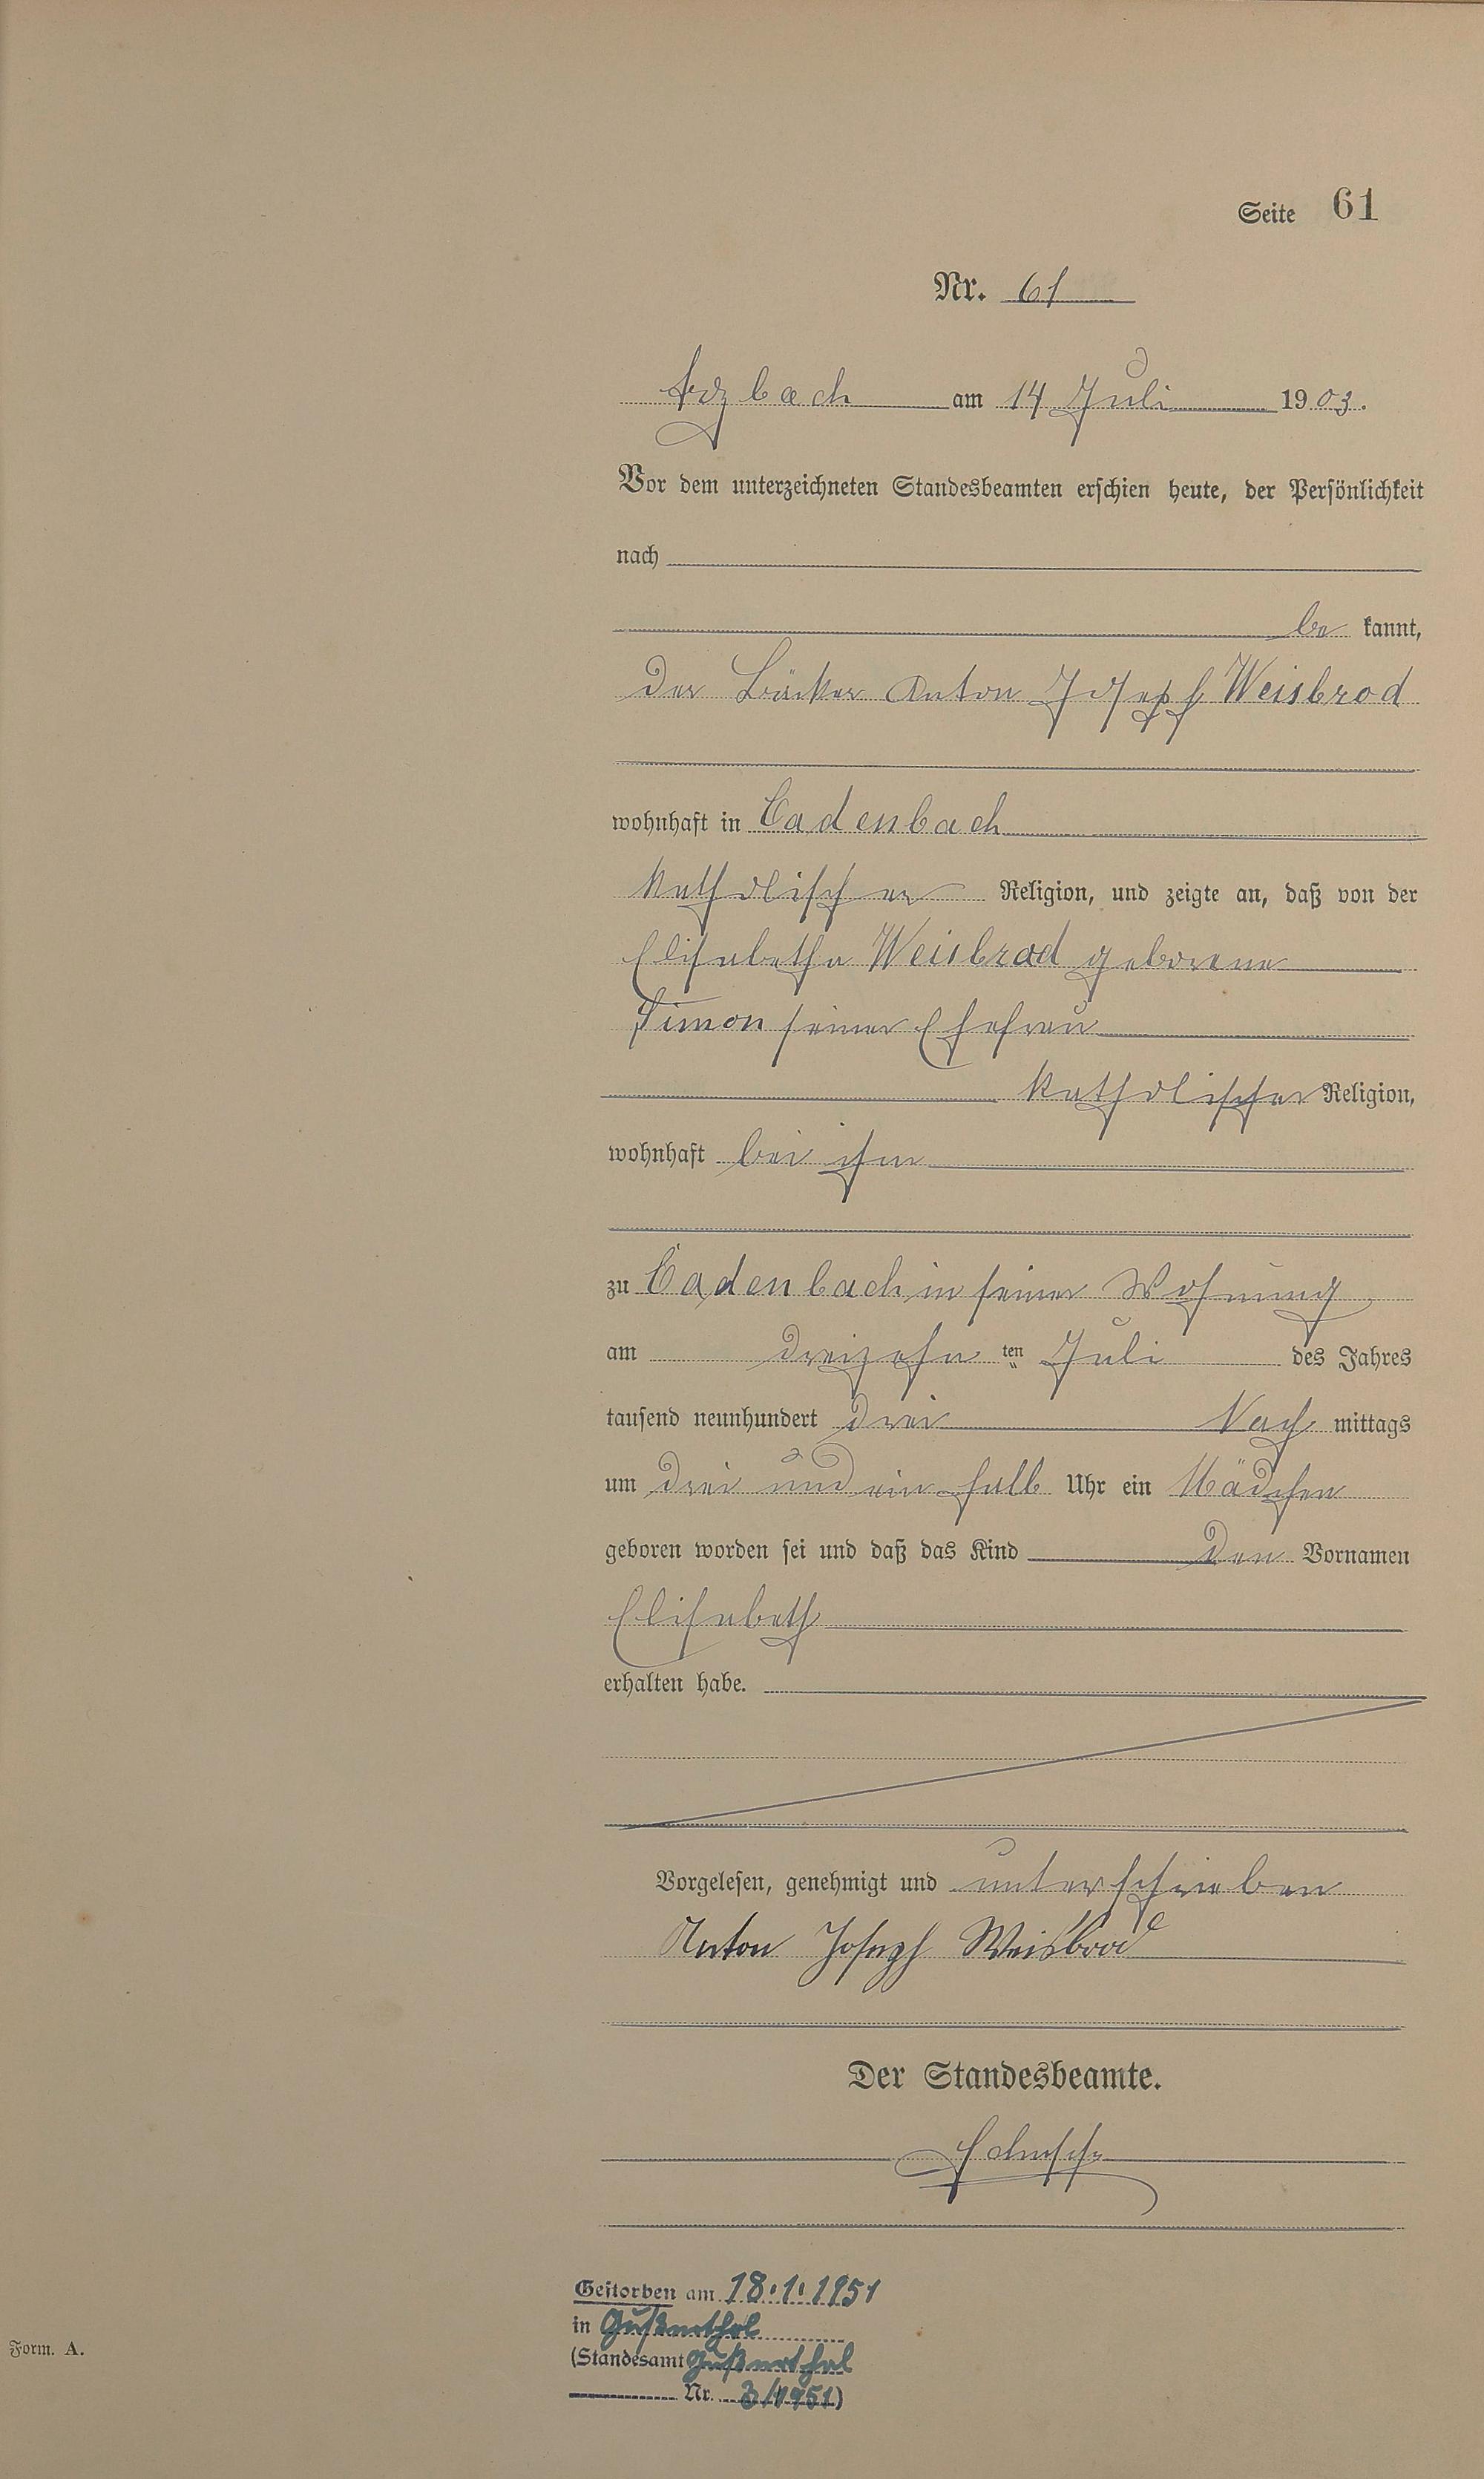 Seite 61
Nr. 61
Arzbach am 14 Juli 1903.
Vor dem unterzeichneten Standesbeamten erschien heute, der Persönlichkeit
nach
be kannt,
der Bäcker Anton Josef Weisbrod
wohnhaft in Cadenbach
katholischer Religion, und zeigte an, daß von der
Elisabetha Weisbrod geborene
Simon seiner Ehefrau
katholischer Religion,
wohnhaft bei ihm
zu Cadenbach in seiner Wohnung
am dreizehn ten Juli des Jahres
tausend neunhundert drei Nach mittags
um drei und ein halb Uhr ein Mädchen
geboren worden sei und daß das Kind den Vornamen
Elisabeth
erhalten habe.
Vorgelesen, genehmigt und unterschrieben
Anton Joseph Weisbrod
Der Standesbeamte.
Gestorben am 18.1.1951
in
(Standesamt
Nr. 3/1951)
Form. A.